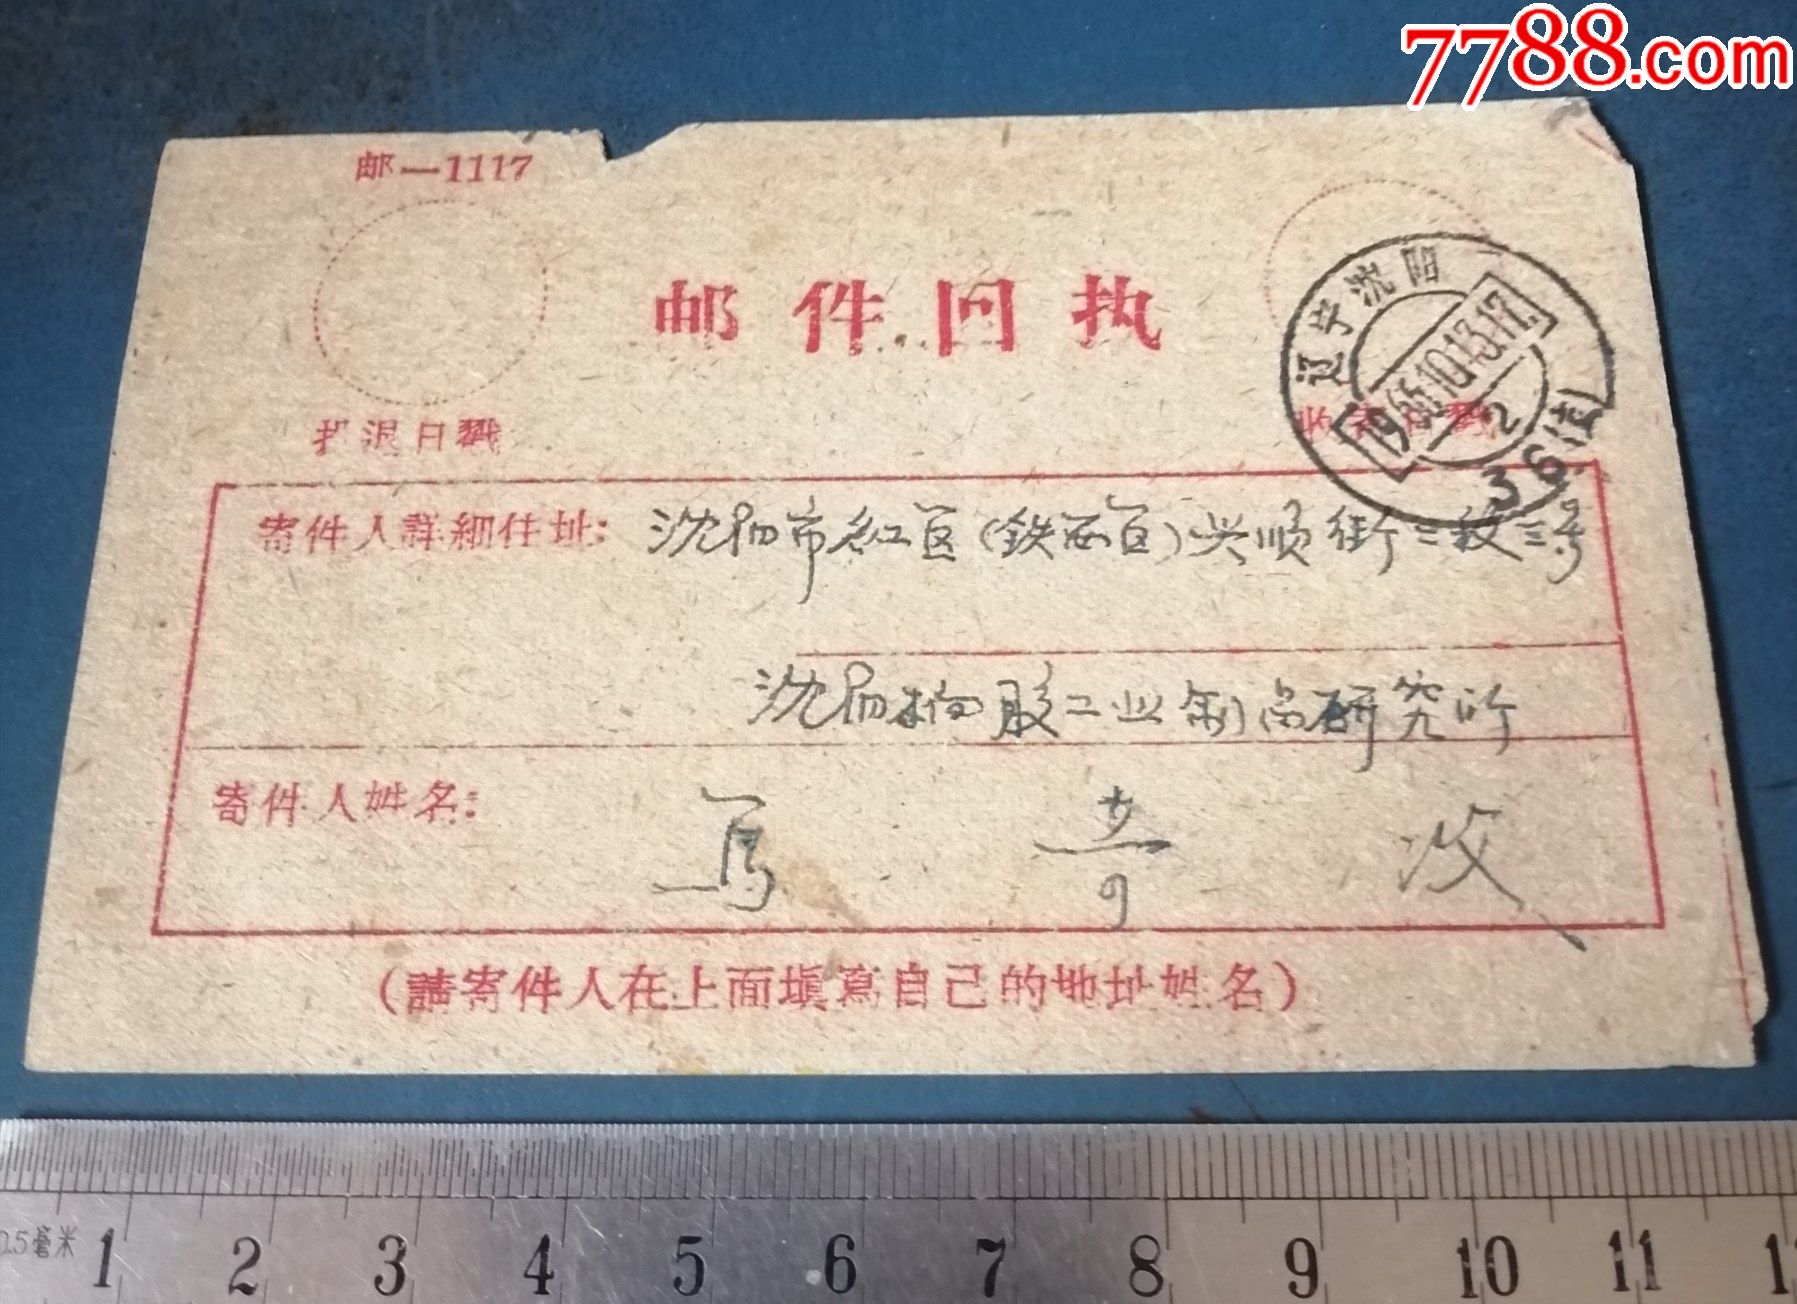 7788.com
邮—1117
邮件回执
辽宁沈阳
1966.10.13.17
36(支)
投退日戳
寄件人詳細住址：沈阳市红区（铁西区）兴顺街三段三号
沈阳橡胶工业制品研究所
寄件人姓名：马 青 波
（請寄件人在上面塡寫自己的地址姓名）
0.5毫米 1 2 3 4 5 6 7 8 9 10 11